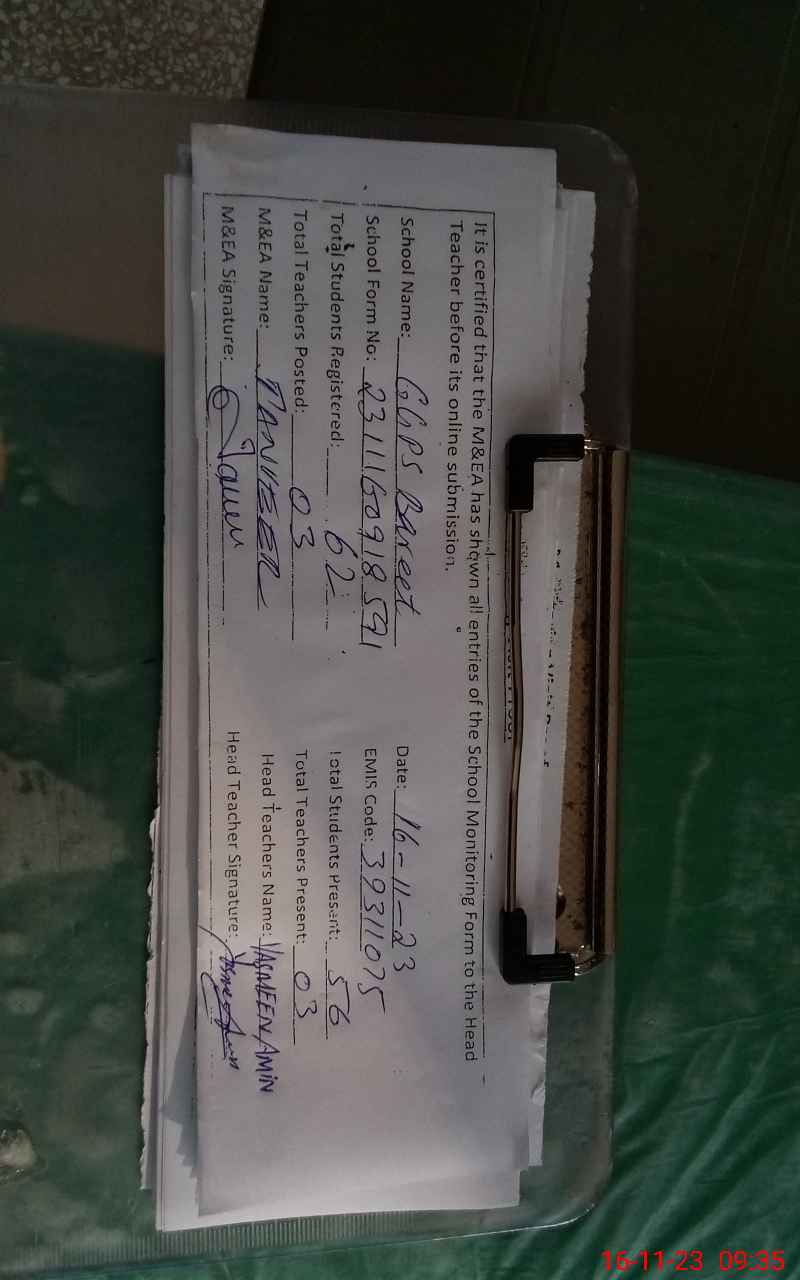 It is certified that the M&EA has shown all entries of the School Monitoring Form to the Head
Teacher before its online submission.
School Name: GGPS Bareet Date: 16-11-23
School Form No: 2311160918591 EMIS Code: 39311075
Total Students Registered: 62 Total Students Present: 56
Total Teachers Posted: 03 Total Teachers Present: 03
M&EA Name: TANVEER Head Teachers Name: YASMEEN AMIN
M&EA Signature: Head Teacher Signature:
16-11-23 09:35